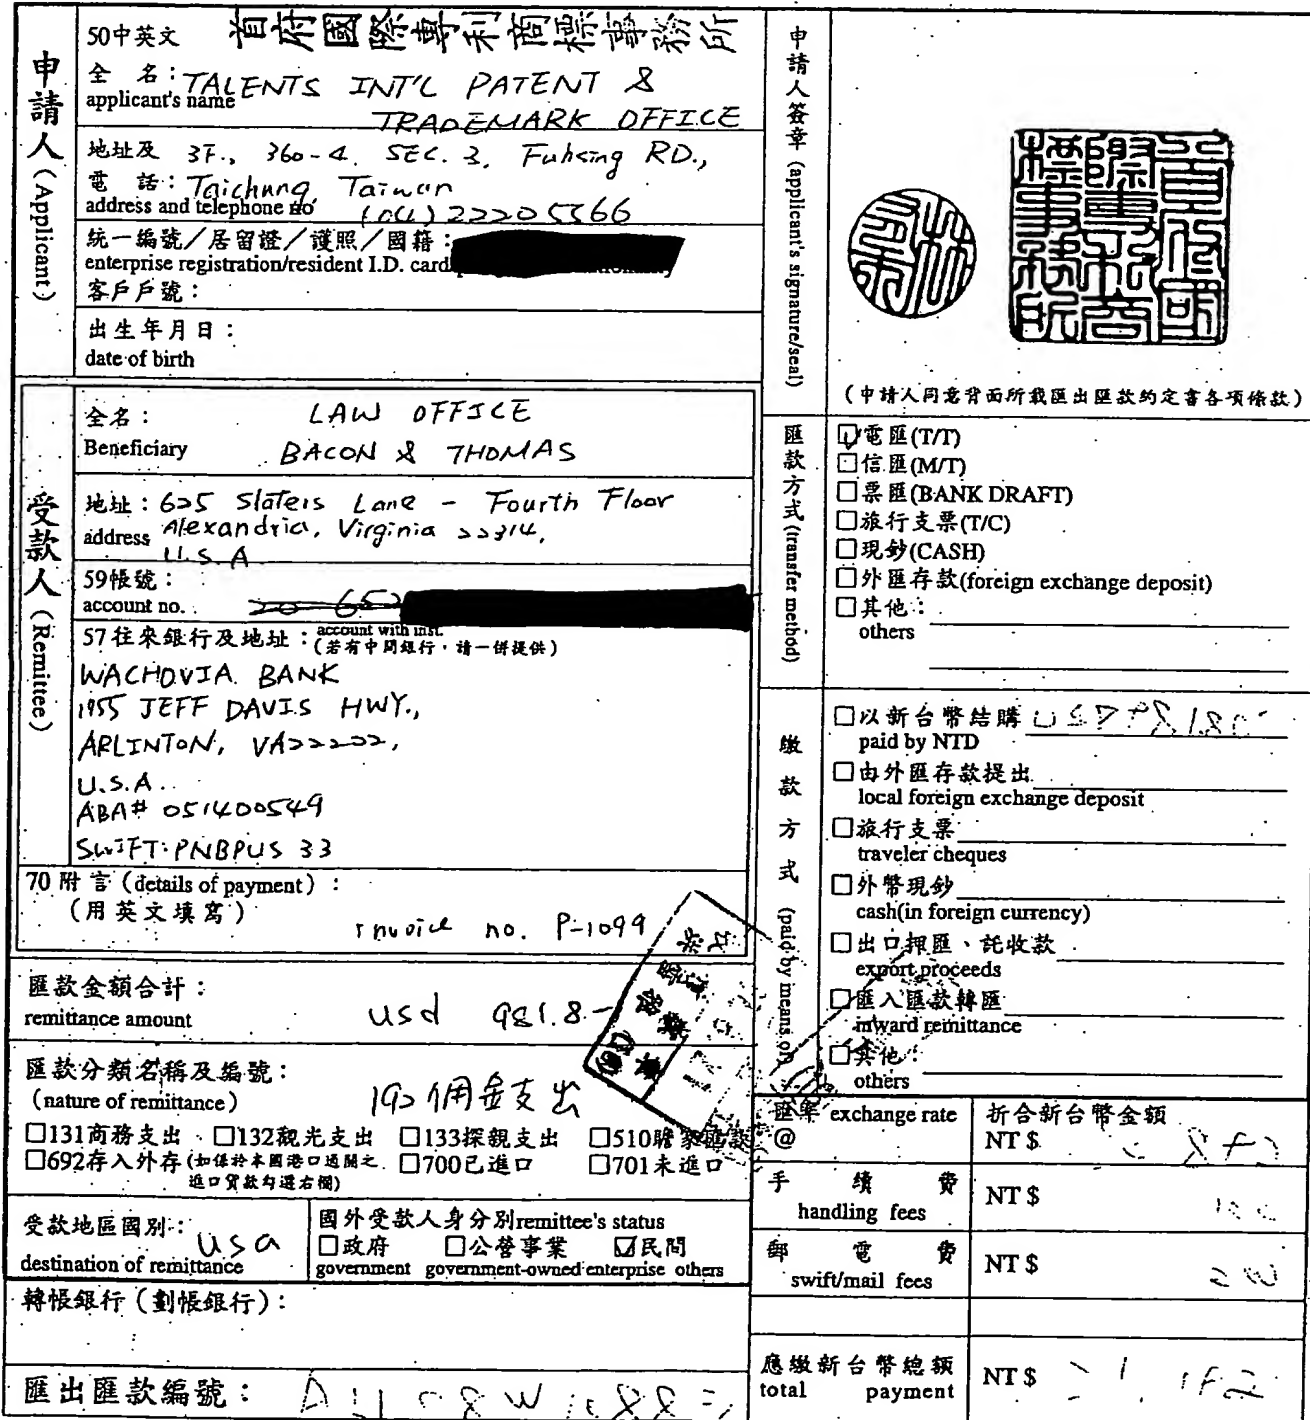 申請人(Applicant)
50中英文 首府國際專利商標事務所
全 名:TALENTS INT'L PATENT &
applicant's name TRADEMARK OFFICE
地址及 3F., 360-4, SEC. 3, Fuhsing RD.,
電 話:Taichung Taiwan
address and telephone no (04) 22205566
統一編號/居留證/護照/國籍:
enterprise registration/resident I.D. card
客戶戶號:
出生年月日:
date of birth
受款人(Remittee)
全名: LAW OFFICE
Beneficiary BACON & THOMAS
地址:625 Slaters Lane - Fourth Floor
address Alexandria, Virginia 22314,
U.S.A
59帳號:
account no.
57往來銀行及地址:account with inst.
(若有中間銀行,請一併提供)
WACHOVIA BANK
1955 JEFF DAVIS HWY.,
ARLINTON, VA22202,
U.S.A.
ABA# 051400549
SWIFT:PNBPUS 33
70附言(details of payment):
(用英文填寫)
invoice no. P-1099
匯款金額合計:
remittance amount usd 981.8-
匯款分類名稱及編號:
(nature of remittance) 192佣金支出
□131商務支出 □132觀光支出 □133探親支出 □510贍家匯款
□692存入外存(如係於本國港口通關之 □700已進口 □701未進口
進口貨款勾選右欄)
受款地區國別: usa
destination of remittance
國外受款人身分別remittee's status
□政府 □公營事業 ☑民間
government government-owned enterprise others
轉帳銀行(劃帳銀行):
匯出匯款編號:
申請人簽章(applicant's signature/seal)
首府國際專利商標事務所
(申請人同意背面所載匯出匯款約定書各項條款)
匯款方式(transfer method)
☑電匯(T/T)
□信匯(M/T)
□票匯(BANK DRAFT)
□旅行支票(T/C)
□現鈔(CASH)
□外匯存款(foreign exchange deposit)
□其他:
others
繳款方式(paid by means of)
□以新台幣結購
paid by NTD
□由外匯存款提出
local foreign exchange deposit
□旅行支票
traveler cheques
□外幣現鈔
cash(in foreign currency)
□出口押匯、託收款
export proceeds
□匯入匯款轉匯
inward remittance
□其他:
others
匯率 exchange rate
@
折合新台幣金額
NT $
手 續 費
handling fees
NT $
郵 電 費
swift/mail fees
NT $
應繳新台幣總額
total payment
NT $